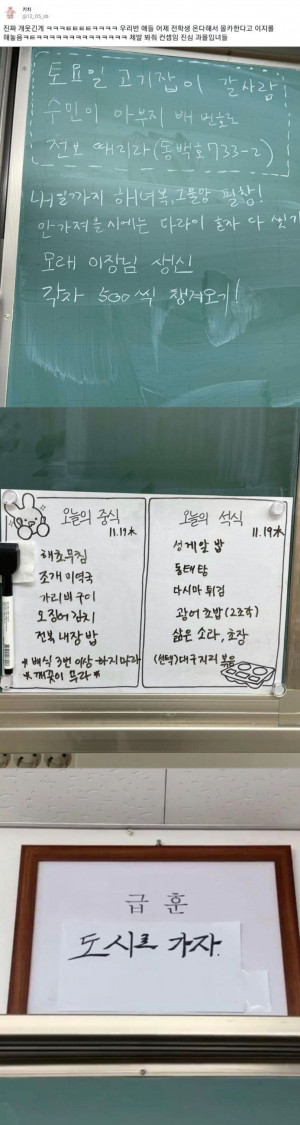 키치
진짜 개웃긴게 ㅋㅋㅋㅌㅌㅌㅌㅋㅋㅋㅋ 우리반 애들 어제 전학생 온다해서 몰카한다고 이지롤
해놓음ㅋㅌㅋㅋㅋㅋㅋㅋㅋㅋㅋㅋㅋㅋㅋㅋ 제발 봐줘 컨셉임 진심 과몰입녀들
토요일 고기잡이 갈사람
수민이 아부지 배 번호로
전보 때리라(동백호733-2)
내일까지 해녀복,그물망 필참!
안가져올시에는 다라이 혼자 다 씻기
모래 이장님 생신
각자 500씩 챙겨오기!
오늘의 중식
11.19木
해초무침
조개 미역국
가리비구이
오징어김치
전복 내장 밥
*배식 3번 이상 하지 마라
*깨끗이 무라*
오늘의 석식
11.19木
성게알 밥
동태탕
다시마 튀김
광어 초밥(2조각)
삶은 소라, 초장
(선택)대구지리 볶음
급훈
도시로 가자.